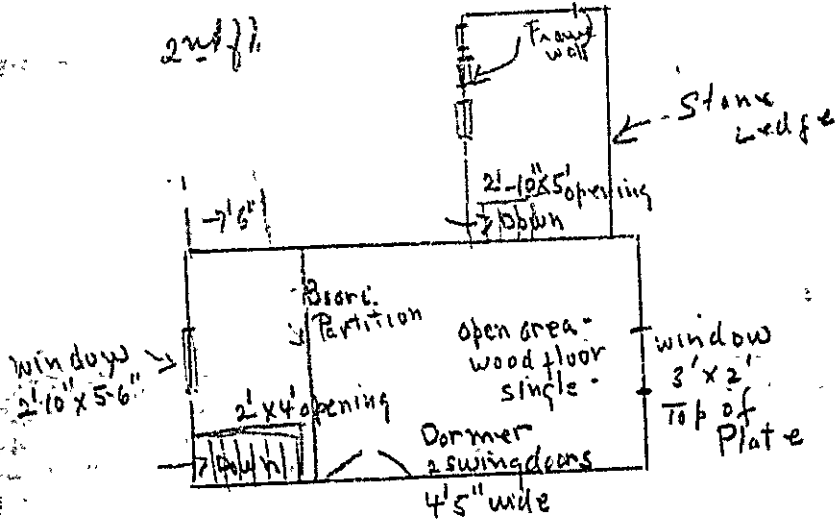 2nd fl.
Frame
wall
Stone
Ledge
2'-10" x 5' opening
Down
7'6"
Board
Partition
open area-
wood floor
single.
window
2'10" x 5-6"
window
3' x 2'
Top of
Plate
2' x 4' opening
Down
Dormer
2 swing doors
4'5" wide